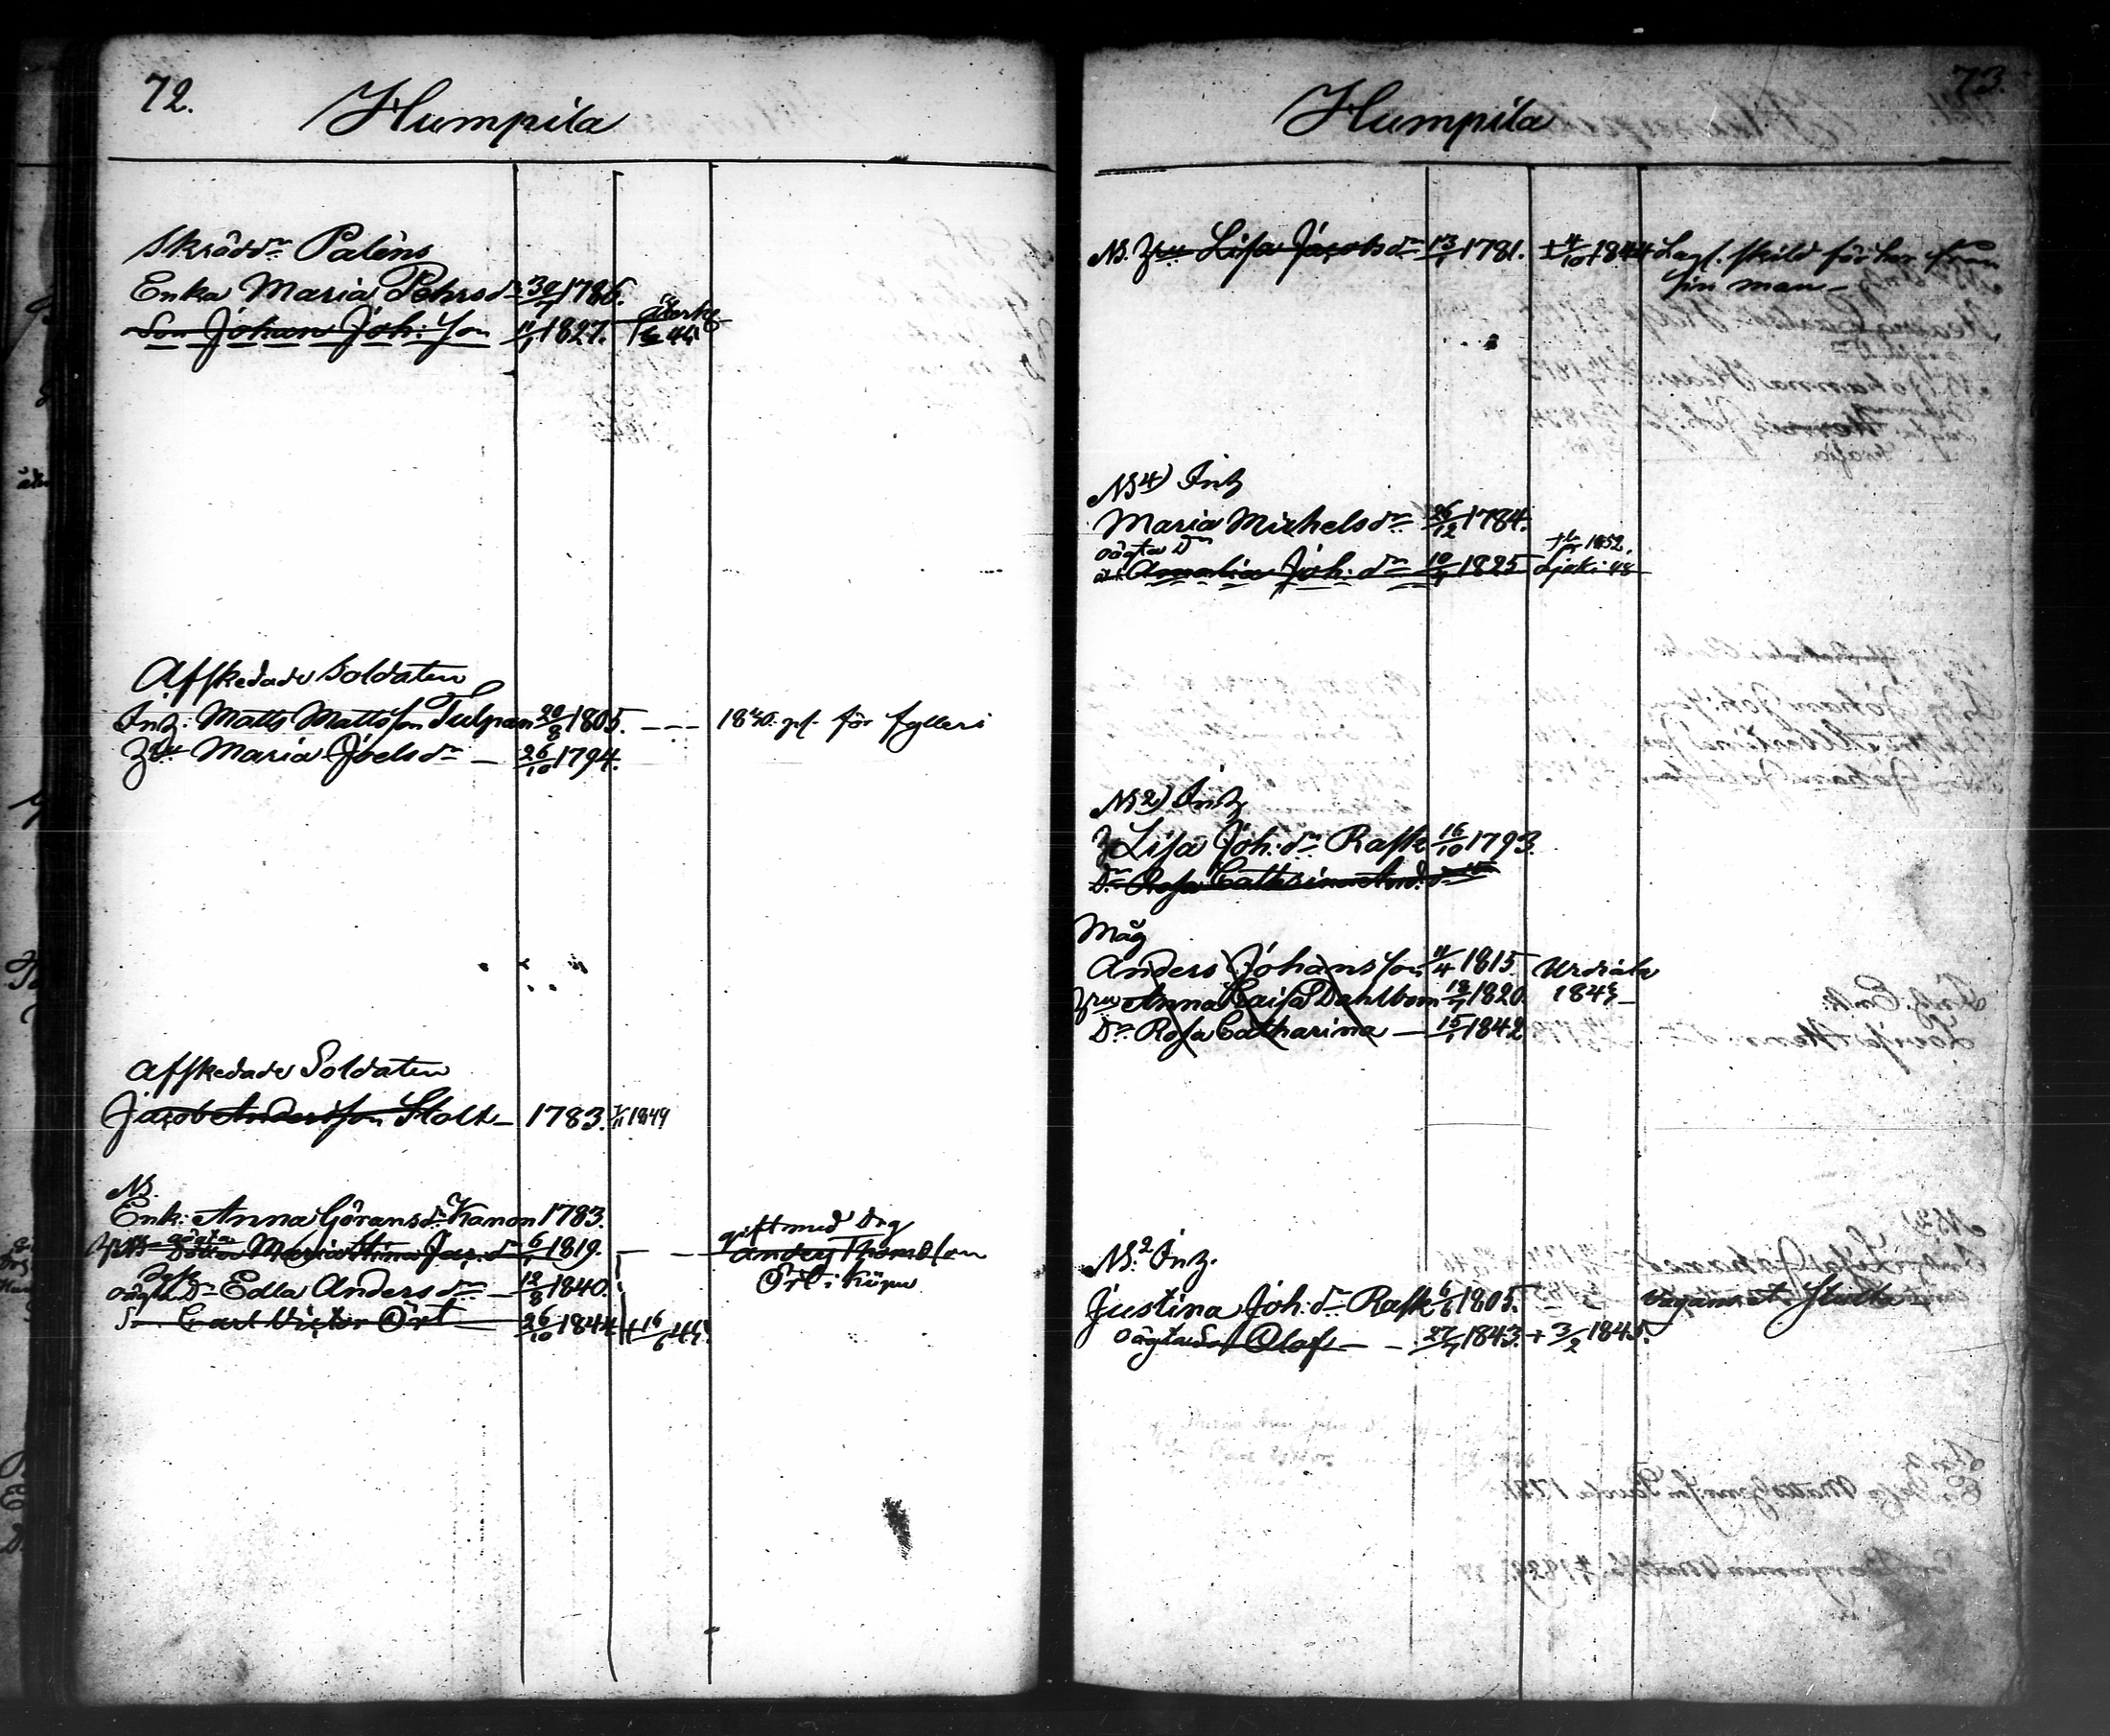 72.
Humpila
Skrädd:n Paléns
Enka Maria Pehrsd:r 30/7 1786.
Son Johan Joh:sson 11/1 1827.
Afskedade Soldaten
Inh: Matts Mattsson Tulpan 20/8 1805. 1840. pl. för fylleri
Hu Maria Joelsd:r 26/10 1794.
Afskedade Soldaten
Jacob Andersson Stolt 1783. 1849
NB.
Enk: Anna Göransd:r Kanon 1783.
Maria Stina Jac:d:r 6/1 1819. gift med Drg
Anders Thomasson
Ört i Köpu
oägta D:r Edla Andersd:r 12/8 1840.
S. Carl Victor Ört 26/10 1844. + 16/6 45.
73.
Humpila
NB. Hu Lisa Jacobsd:r 13/1 1781. + 4/10 1844 Lagl. skild förher från
sin man
NB 4) Inh
Maria Michelsd:r 26/12 1784.
oägta D:r + 1852.
Amalia Joh:d:r 1825
NB 2) Inh
Lisa Joh:d:r Rask 16/10 1793.
D:r Rosa Catharina And:d:r
Måg
Anders Johansson 11/4 1815. Urdiala
Hru Anna Caisa Dahlbom 1820.
D:r Rosa Catharina 15/1 1842
NB:2 Inh.
Justina Joh:d:r Rask 6/6 1805.
oägta Son Olof 27/7 1843. + 3/2 1845.